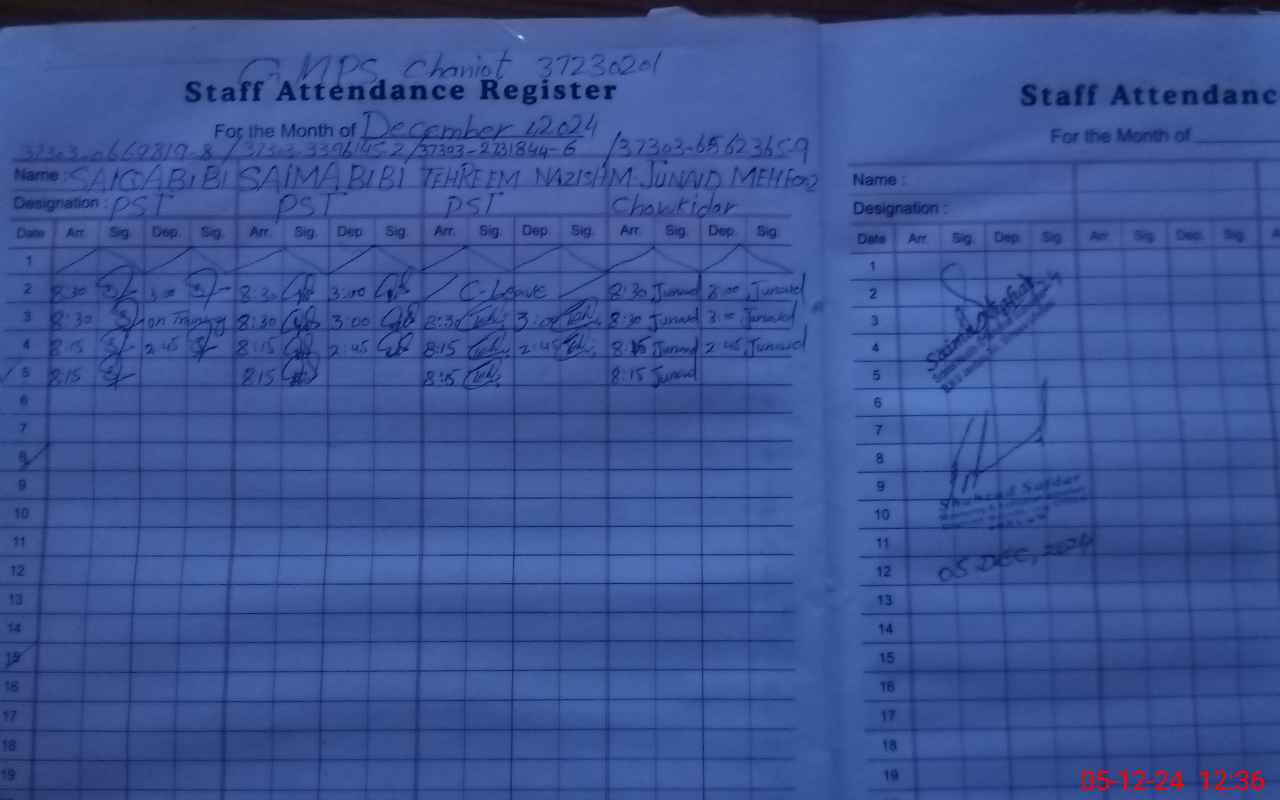 GMPS Chaniot 37230201
Staff Attendance Register
For the Month of December 2024
37303-0669819-8 / 37303-3396145-2 / 37303-2731844-6 / 37303-6562365-9
Name : SAIQA BIBI SAIMA BIBI TEHREEM NAZISH M. JUNAID MEHFOOZ
Designation : PST PST PST Chowkidar
Date Arr. Sig. Dep. Sig. Arr. Sig. Dep. Sig. Arr. Sig. Dep. Sig. Arr. Sig. Dep. Sig.
1
2 8:30 3:00 8:30 3:00 C-Leave 8:30 Junaid 3:00 Junaid
3 8:30 on Training 8:30 3:00 8:30 3:00 8:30 Junaid 3:00 Junaid
4 8:15 2:45 8:15 2:45 8:15 2:45 8:15 Junaid 2:45 Junaid
5 8:15 8:15 8:15 8:15 Junaid
6
7
8
9
10
11
12
13
14
15
16
17
18
19
Staff Attendanc
For the Month of
Name :
Designation :
Date Arr. Sig. Dep. Sig. Arr. Sig. Dep. Sig.
1
2
3
4
5
6
7
8
9
Shahzad Safdar
10
11
12
05 DEC, 2024
13
14
15
16
17
18
19
05-12-24 12:36